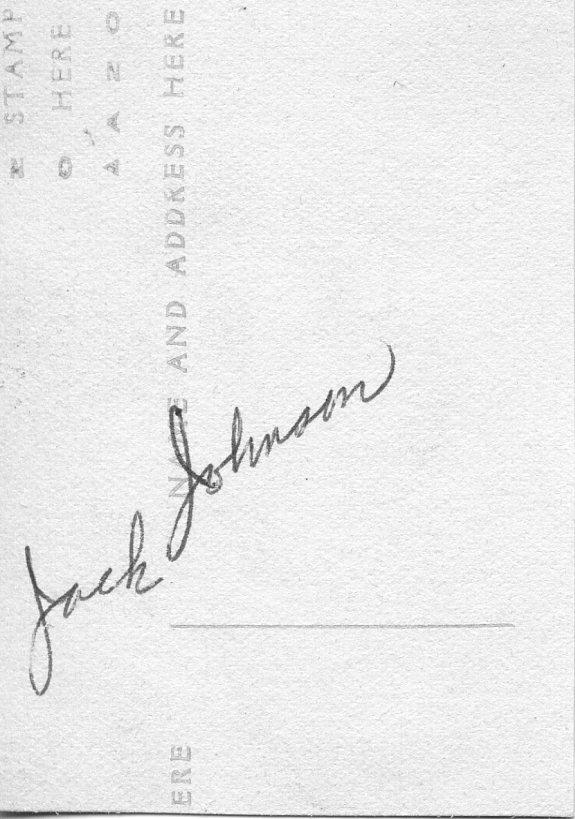 STAMP
HERE
A Z O
NAME AND ADDRESS HERE
ERE
Jack Johnson